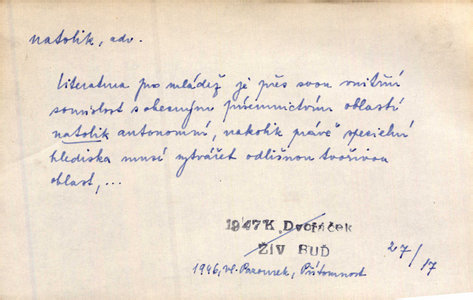 natolik, adv.
Literatura pro mládež je přes svou vnitřní
souvislost s obecným písemnictvím oblastí
natolik autonomní, nakolik právě speciální
hlediska musí vytvářet odlišnou tvořivou
oblast,...
1947 K. Dvořáček
ŽIV BUĎ
1946, Vl. Pazourek, Přítomnost
27/17